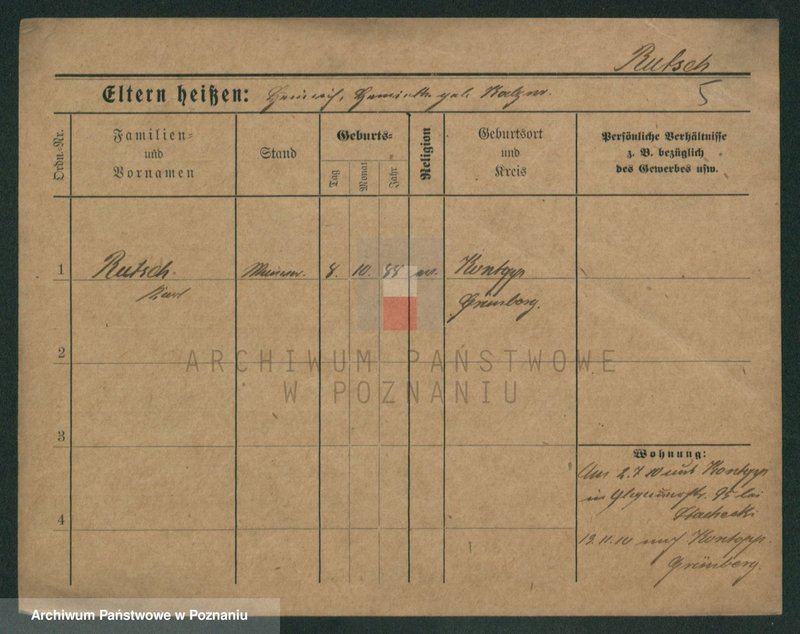 Rutsch
5
Eltern heißen: Heinrich, Henriette geb.
Ordn.-Nr.
Familien-
und
Vornamen
Stand
Geburts-
Tag
Monat
Jahr
Religion
Geburtsort
und
Kreis
Persönliche Verhältnisse
z. B. bezüglich
des Gewerbes usw.
1 Rutsch Maurer 8. 10. 88 ev. Kontopp
Karl Grünberg.
2
3
4
Wohnung:
Aus 2.7.10 aus Kontopp
in Glogauerstr. 95 bei
13.11.10 nach Kontopp
Grünberg.
ARCHIWUM PAŃSTWOWE
W POZNANIU
Archiwum Państwowe w Poznaniu